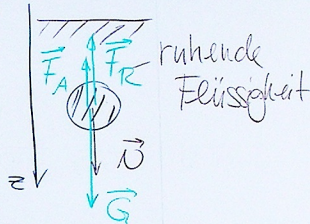 F_A F_R ruhende
Flüssigkeit
v
z
G